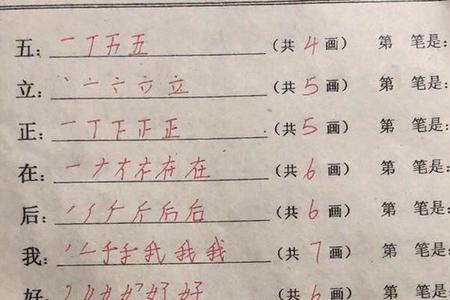 五：一丁五五（共4画）第 笔是：
立：丶亠六立立（共5画）第 笔是：
正：一丁下正正（共5画）第 笔是：
在：一ナ才在在在（共6画）第 笔是：
后：后后（共6画）第 笔是：
我：我我我（共7画）第 笔是：
好：好好（共6画）第 笔是：